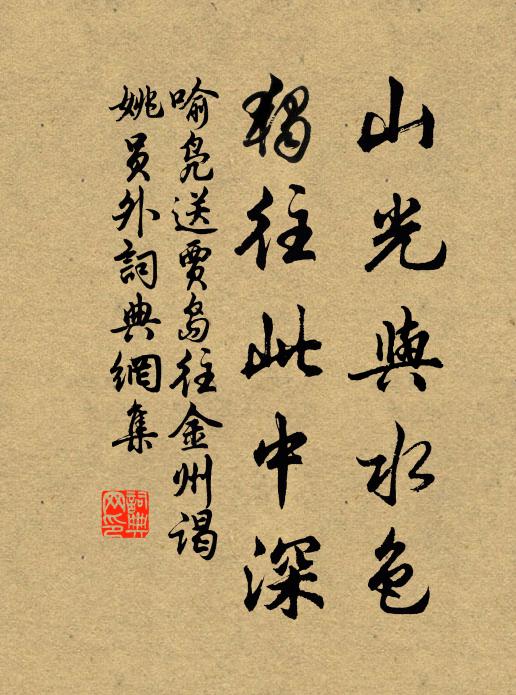 山光與水色
獨往此中深
喻鳧送賈島往金州謁
姚員外詞典網集
詞典网印